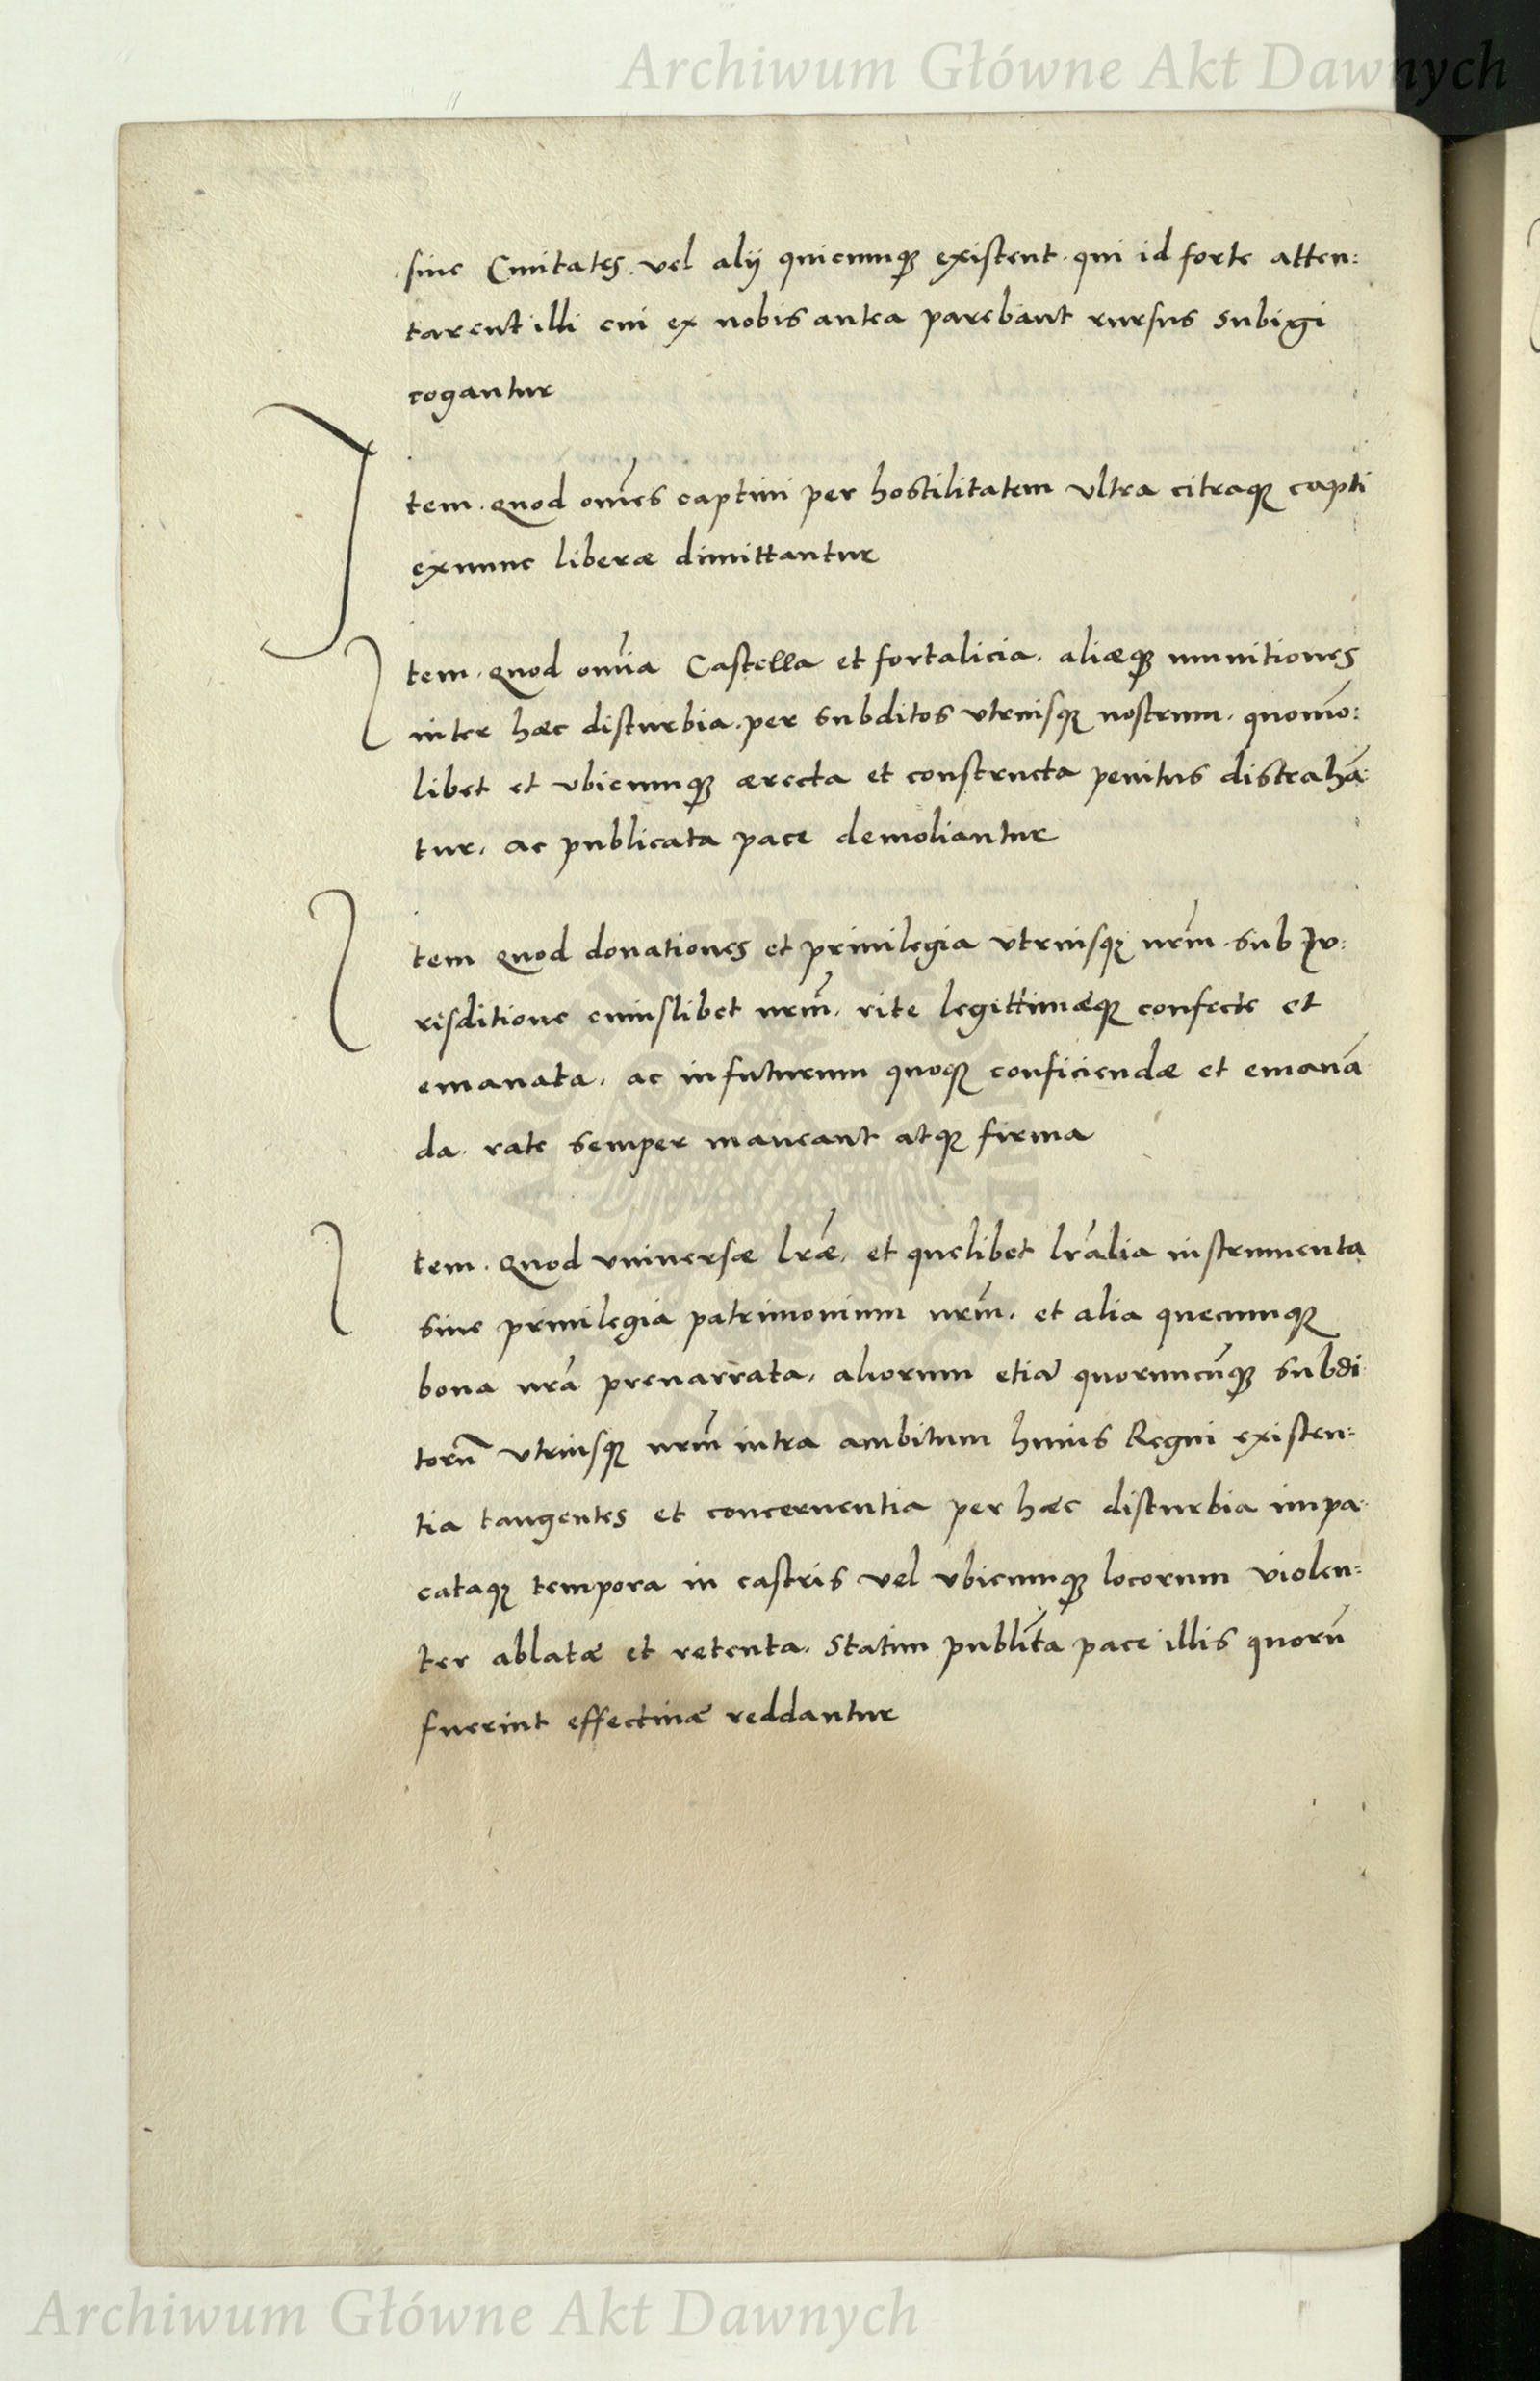 Archiwum Główne Akt Dawnych
siue Ciuitates. vel alij quicumqꝫ existent. qui id forte atten:
tarent illi cui ex nobis antea parebant rursus subigi
cogantur
Item. quod om̄es captiui per hostilitatem vltra citraqꝫ capti
exnunc liberæ dimittantur
Item. quod om̄ia Castella et fortalicia. aliæqꝫ munitiones
inter hæc disturbia. per subditos vtriusqꝫ nostrum. quomō:
libet et vbicumqꝫ ærecta et constructa penitus distrahā:
tur. ac publicata pace demoliantur
Item quod donationes et priuilegia vtriusqꝫ nr̄m. sub Ju:
risditione cuiuslibet nr̄m. rite legittimæqꝫ confecte et
emanata. ac infuturum quoqꝫ conficiendæ et emanā
da. rate semper maneant atqꝫ firma
Item. quod vniuersæ lr̄æ. et quelibet lr̄alia instrumenta
siue priuilegia patrimonium nr̄m. et alia quecumqꝫ
bona nr̄a prenarrata. aliorum etiā quorumcūqꝫ subdi:
torū vtriusqꝫ nr̄m intra ambitum huius Regni existen:
tia tangentes et concernentia per hæc disturbia impa:
cataqꝫ tempora in castris vel vbicumqꝫ locorum violen:
ter ablatæ et retenta. Statim publi̅ta pace illis quorū
fuerint effectiuæ reddantur
Archiwum Główne Akt Dawnych